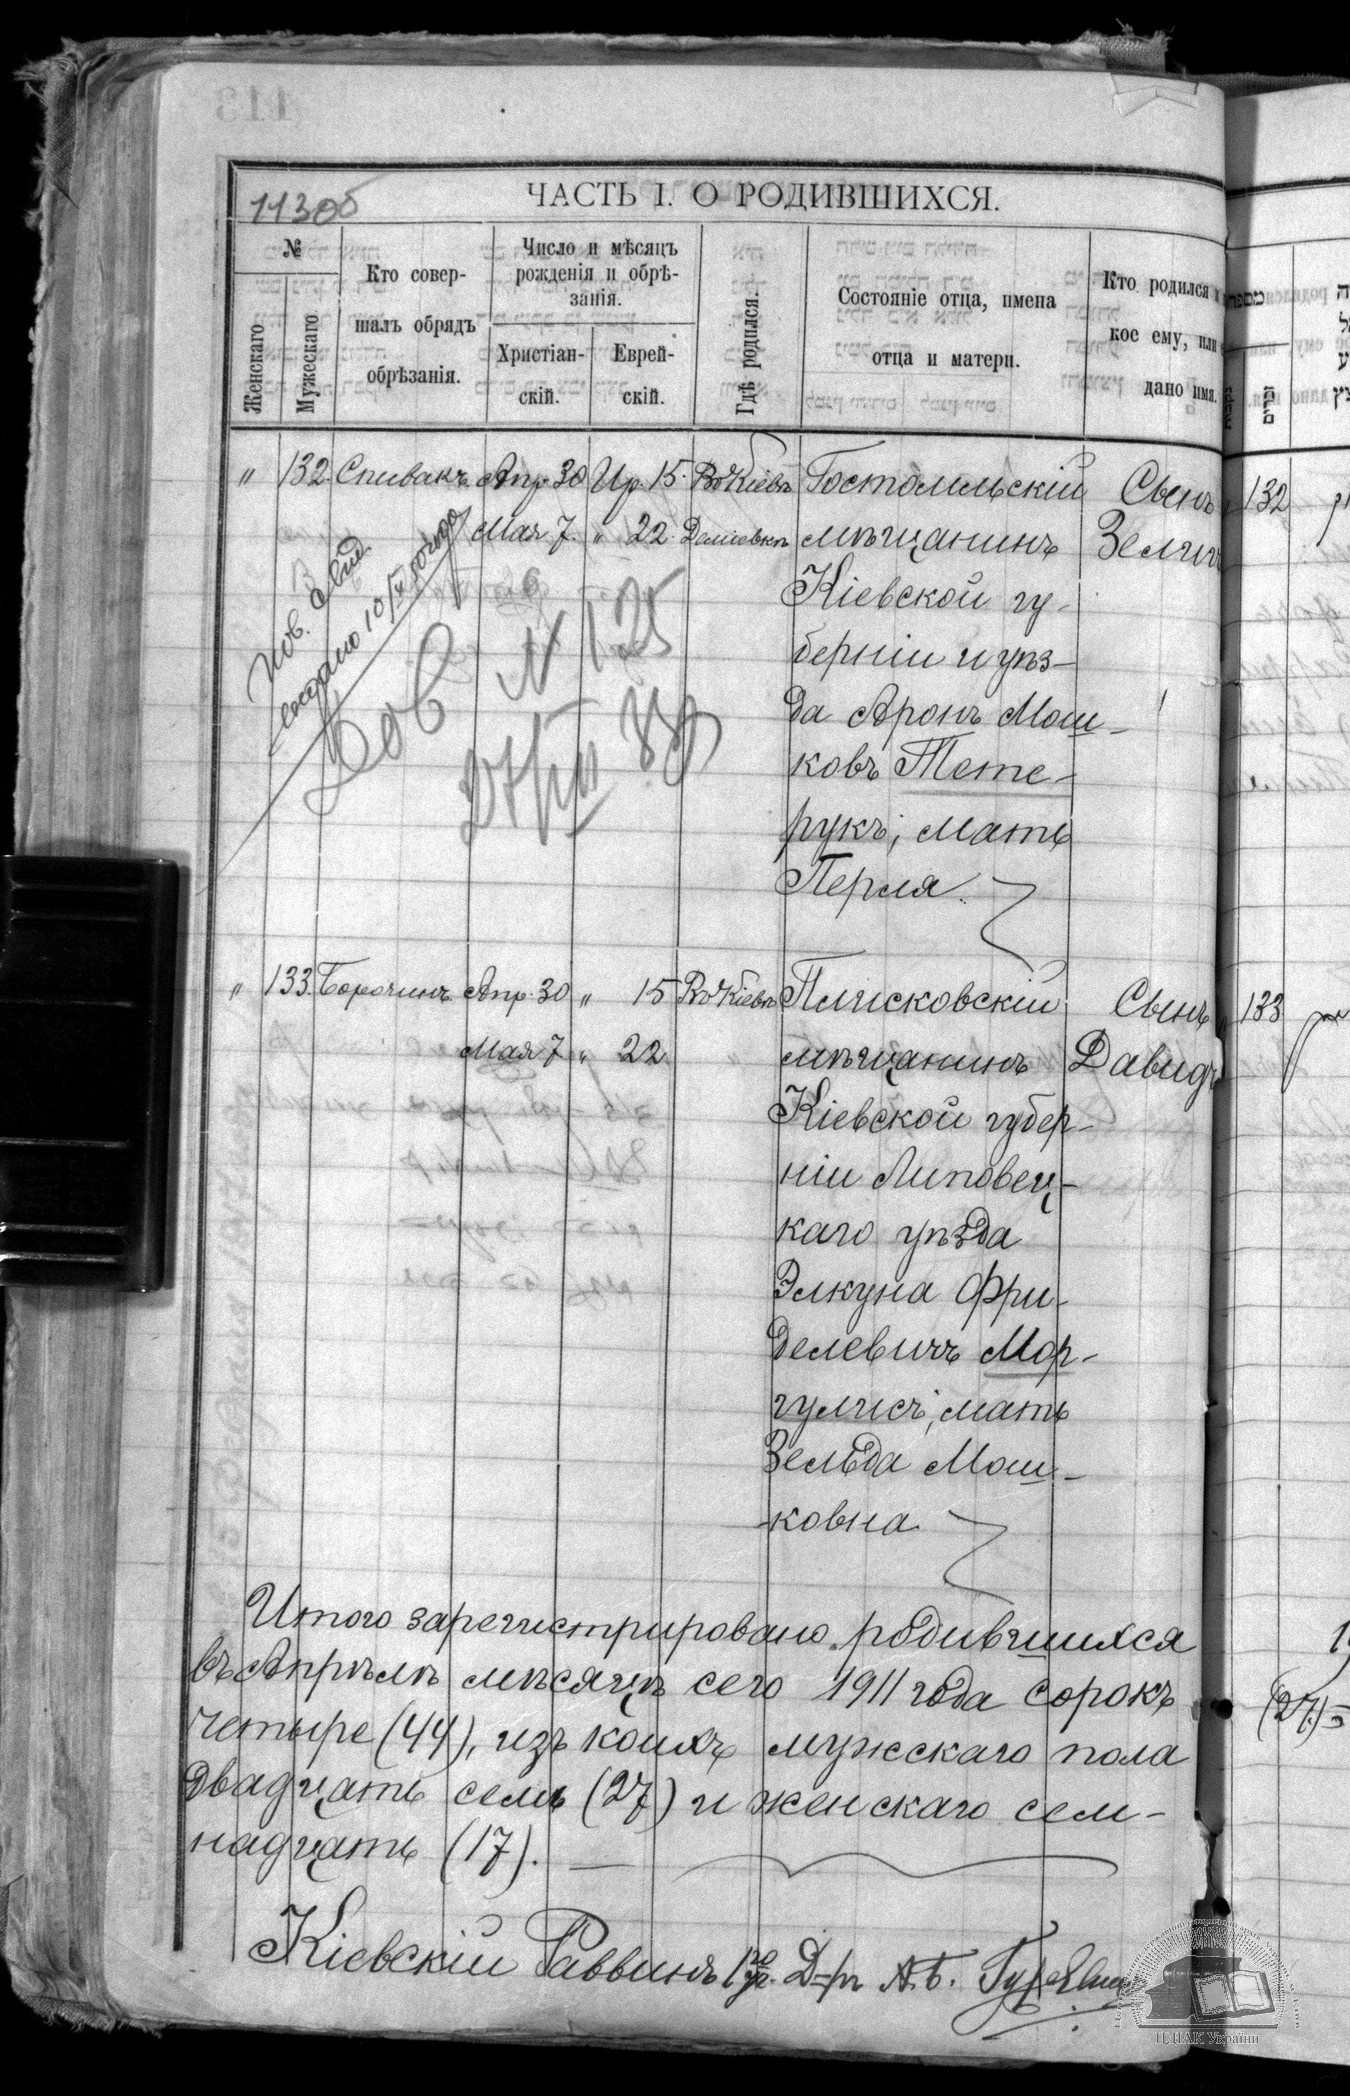 113об
ЧАСТЬ I. О РОДИВШИХСЯ.
№
Женскаго
Мужескаго
Кто совер-
шалъ обрядъ
обрѣзанія.
Число и мѣсяцъ
рожденія и обрѣ-
занія.
Христіан-
скій.
Еврей-
скій.
Гдѣ родился.
Состояніе отца, имена
отца и матери.
Кто родился и
кое ему, или
дано имя.
" 132. Спивакъ Апр. 30 Ир. 15. Въ Кіевѣ Гостомльскій Сынъ
Мая 7. " 22. Деміевкѣ мѣщанинъ Зелигъ
Кіевской гу-
берніи и уѣз-
да Аронъ Мош-
ковъ Тете-
рукъ, мать
Перля
Пов. свид.
выдано 10/X
Дов N 125
" 133. Борочинъ Апр. 30 " 15 Въ Кіевѣ Плисковскій Сынъ
Мая 7 " 22 " мѣщанинъ Давидъ
Кіевской губер-
ніи Липовец-
каго уѣзда
Элкуна Фри-
делевичъ Мар-
гулисъ, мать
Зельда Мош-
ковна
Итого зарегистрировано родившихся
въ Апрѣлѣ мѣсяцѣ сего 1911 года сорокъ
четыре (44), изъ коихъ мужскаго пола
двадцать семь (27) и женскаго сем-
надцать (17).
Кіевскій Раввинъ Д-ръ А.Б. Гуревичъ
132
133
(27)
ЦДІАК України